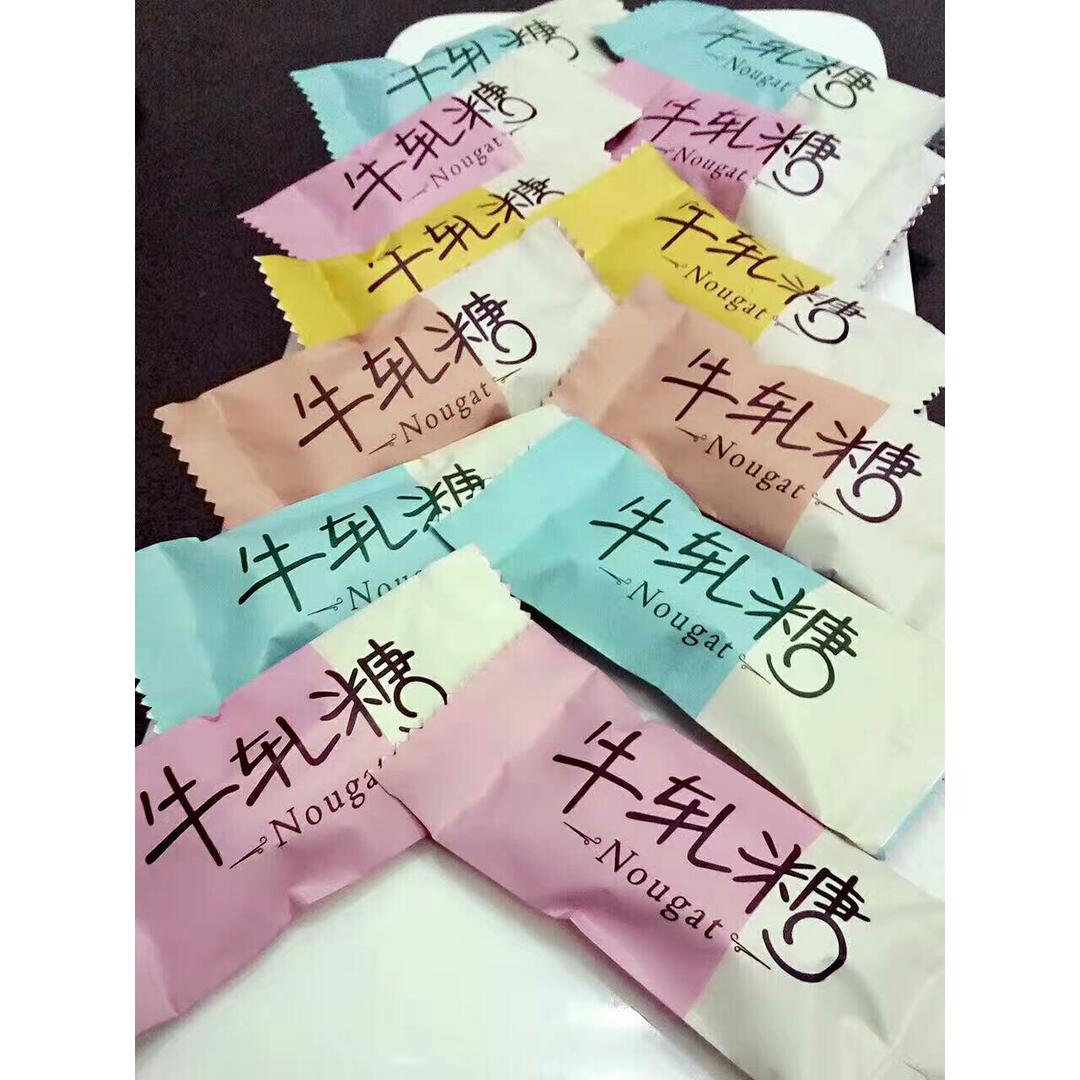 牛轧糖
牛轧糖
Nougat
牛轧糖
Nougat
牛轧糖
Nougat
牛轧糖
牛轧糖
Nougat
牛轧糖
Nougat
牛轧糖
Nougat
牛轧糖
Nou
牛轧糖
Nougat
牛轧糖
Nouga
牛轧糖
Nougat